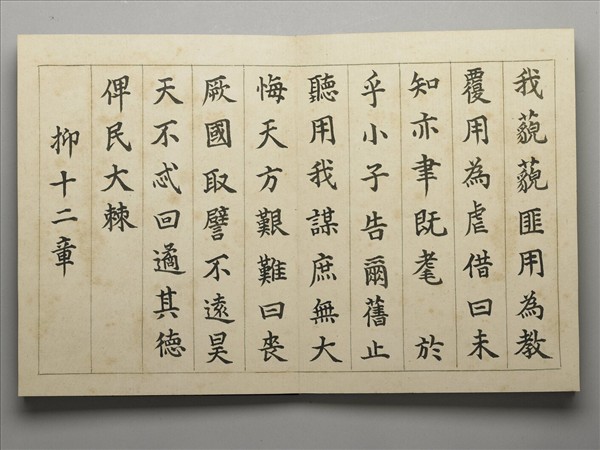 我藐藐匪用為教
覆用為虐借曰未
知亦聿既耄　於
乎小子告爾舊止
聽用我謀庶無大
悔天方艱難曰喪
厥國取譬不遠昊
天不忒回遹其德
俾民大棘
抑十二章